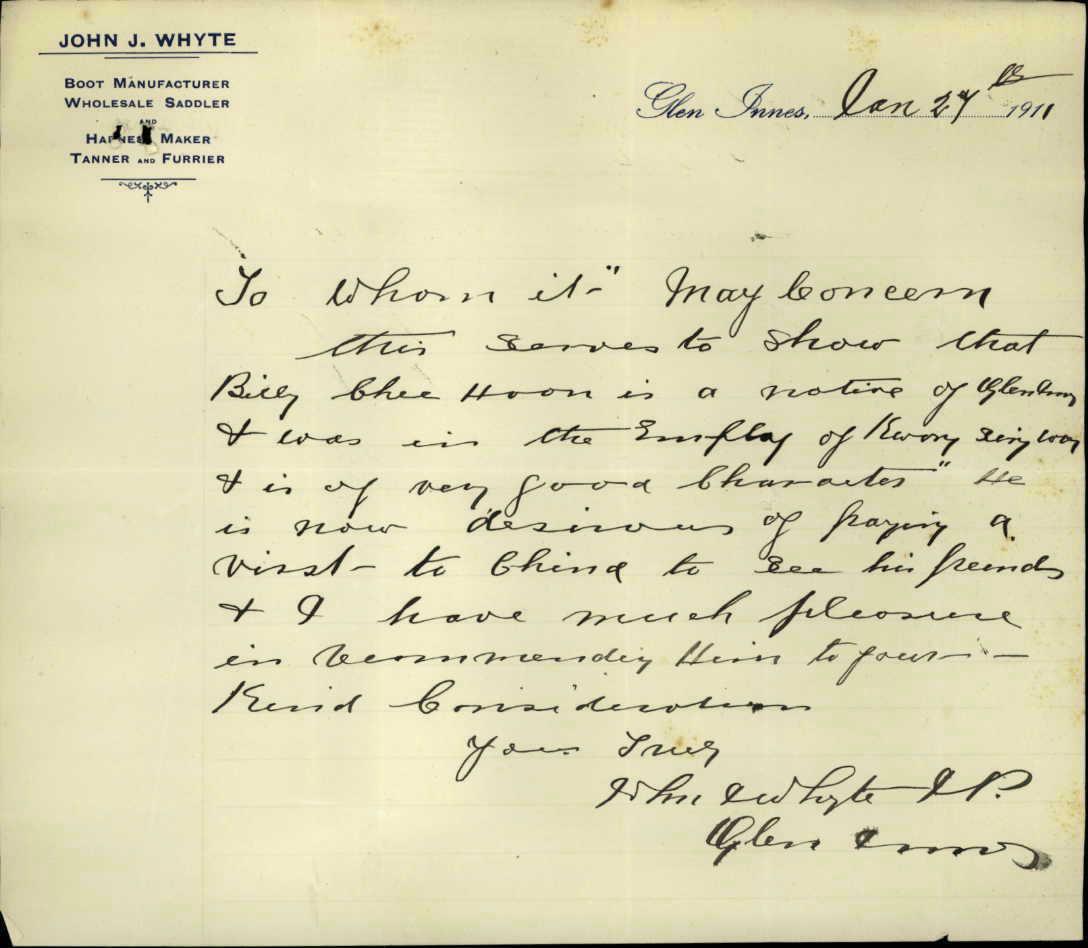 JOHN J. WHYTE
BOOT MANUFACTURER
WHOLESALE SADDLER
AND
HARNESS MAKER
TANNER AND FURRIER
Glen Innes, Jan 27th 1911
To Whom it" May Concern
this serves to show that
Billy Chee Hoon is a native of Glen Innes
& was in the Employ of Kwong Sing Way
& is of very good Character" He
is now desirous of paying a
visit to China to see his freinds
& I have much pleasure
in recommending Him to your
Kind Consideration
Yours Truly
John J Whyte JP.
Glen Innes